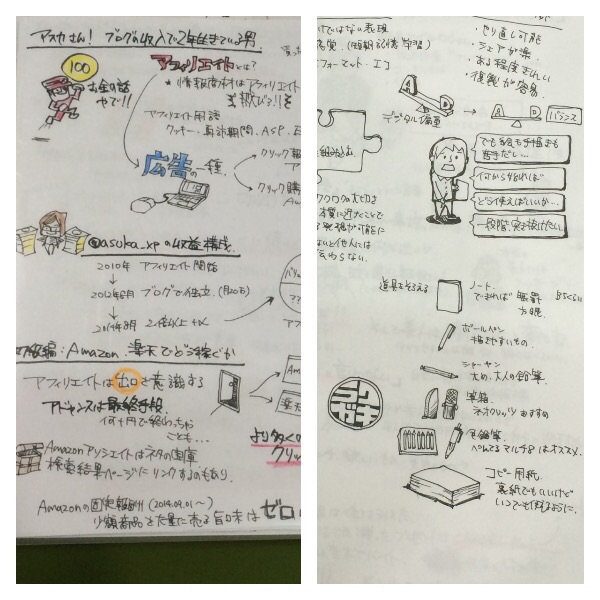 アスカさん! ブログの収入で2年生きている男
100
お金の話
やで!!
アフィリエイトとは?
★情報商材はアフィリエイト
アフィリエイト用語
クッキー・再訪期間、ASP、
広告の一種
クリック報
クリック購
@asuka_xpの収益構成
2010年 アフィリエイト開始
↓
2012年6月 ブログで独立 (月20万)
↓
2014年8月 2倍以上
級編:Amazon、楽天でどう稼ぐか
Am
楽天
アフィリエイトは出口を意識する
アドセンスは最終手段
何十円で終わっちゃ
ことも…
より多くの
クリッ
Amazonアソシエイトはネタの倉庫
検索結果ページにリンクするのもあり
Amazonの固定報酬 (2014.09.01〜)
少額商品を大量に売る旨味はゼロ
けではない表現
(短期記憶 学習)
フォーマット・エコ
・やり直し可能
・シェアが楽
・ある程度きれい
・複製が容易
A
D
デジタル偏重
A
D
バランス
組み込む
でも絵も手描きも
苦手だし…
何から始めれば
どう使えばいいか…
一段階突き抜けたい
ラクガキの大切さ
本質に近づくことで
発想が可能に
ないと他人には
伝わらない
道具をそろえる
ノート
できれば無罫
方眼
B5くらい
ボールペン
描きやすいもの
シャーペン
太め、大人の鉛筆
筆箱
ネオクリッツおすすめ
色鉛筆
ぺんてるマルチ8はオススメ
コピー用紙
裏紙でもいいけど
いつでも描けるように